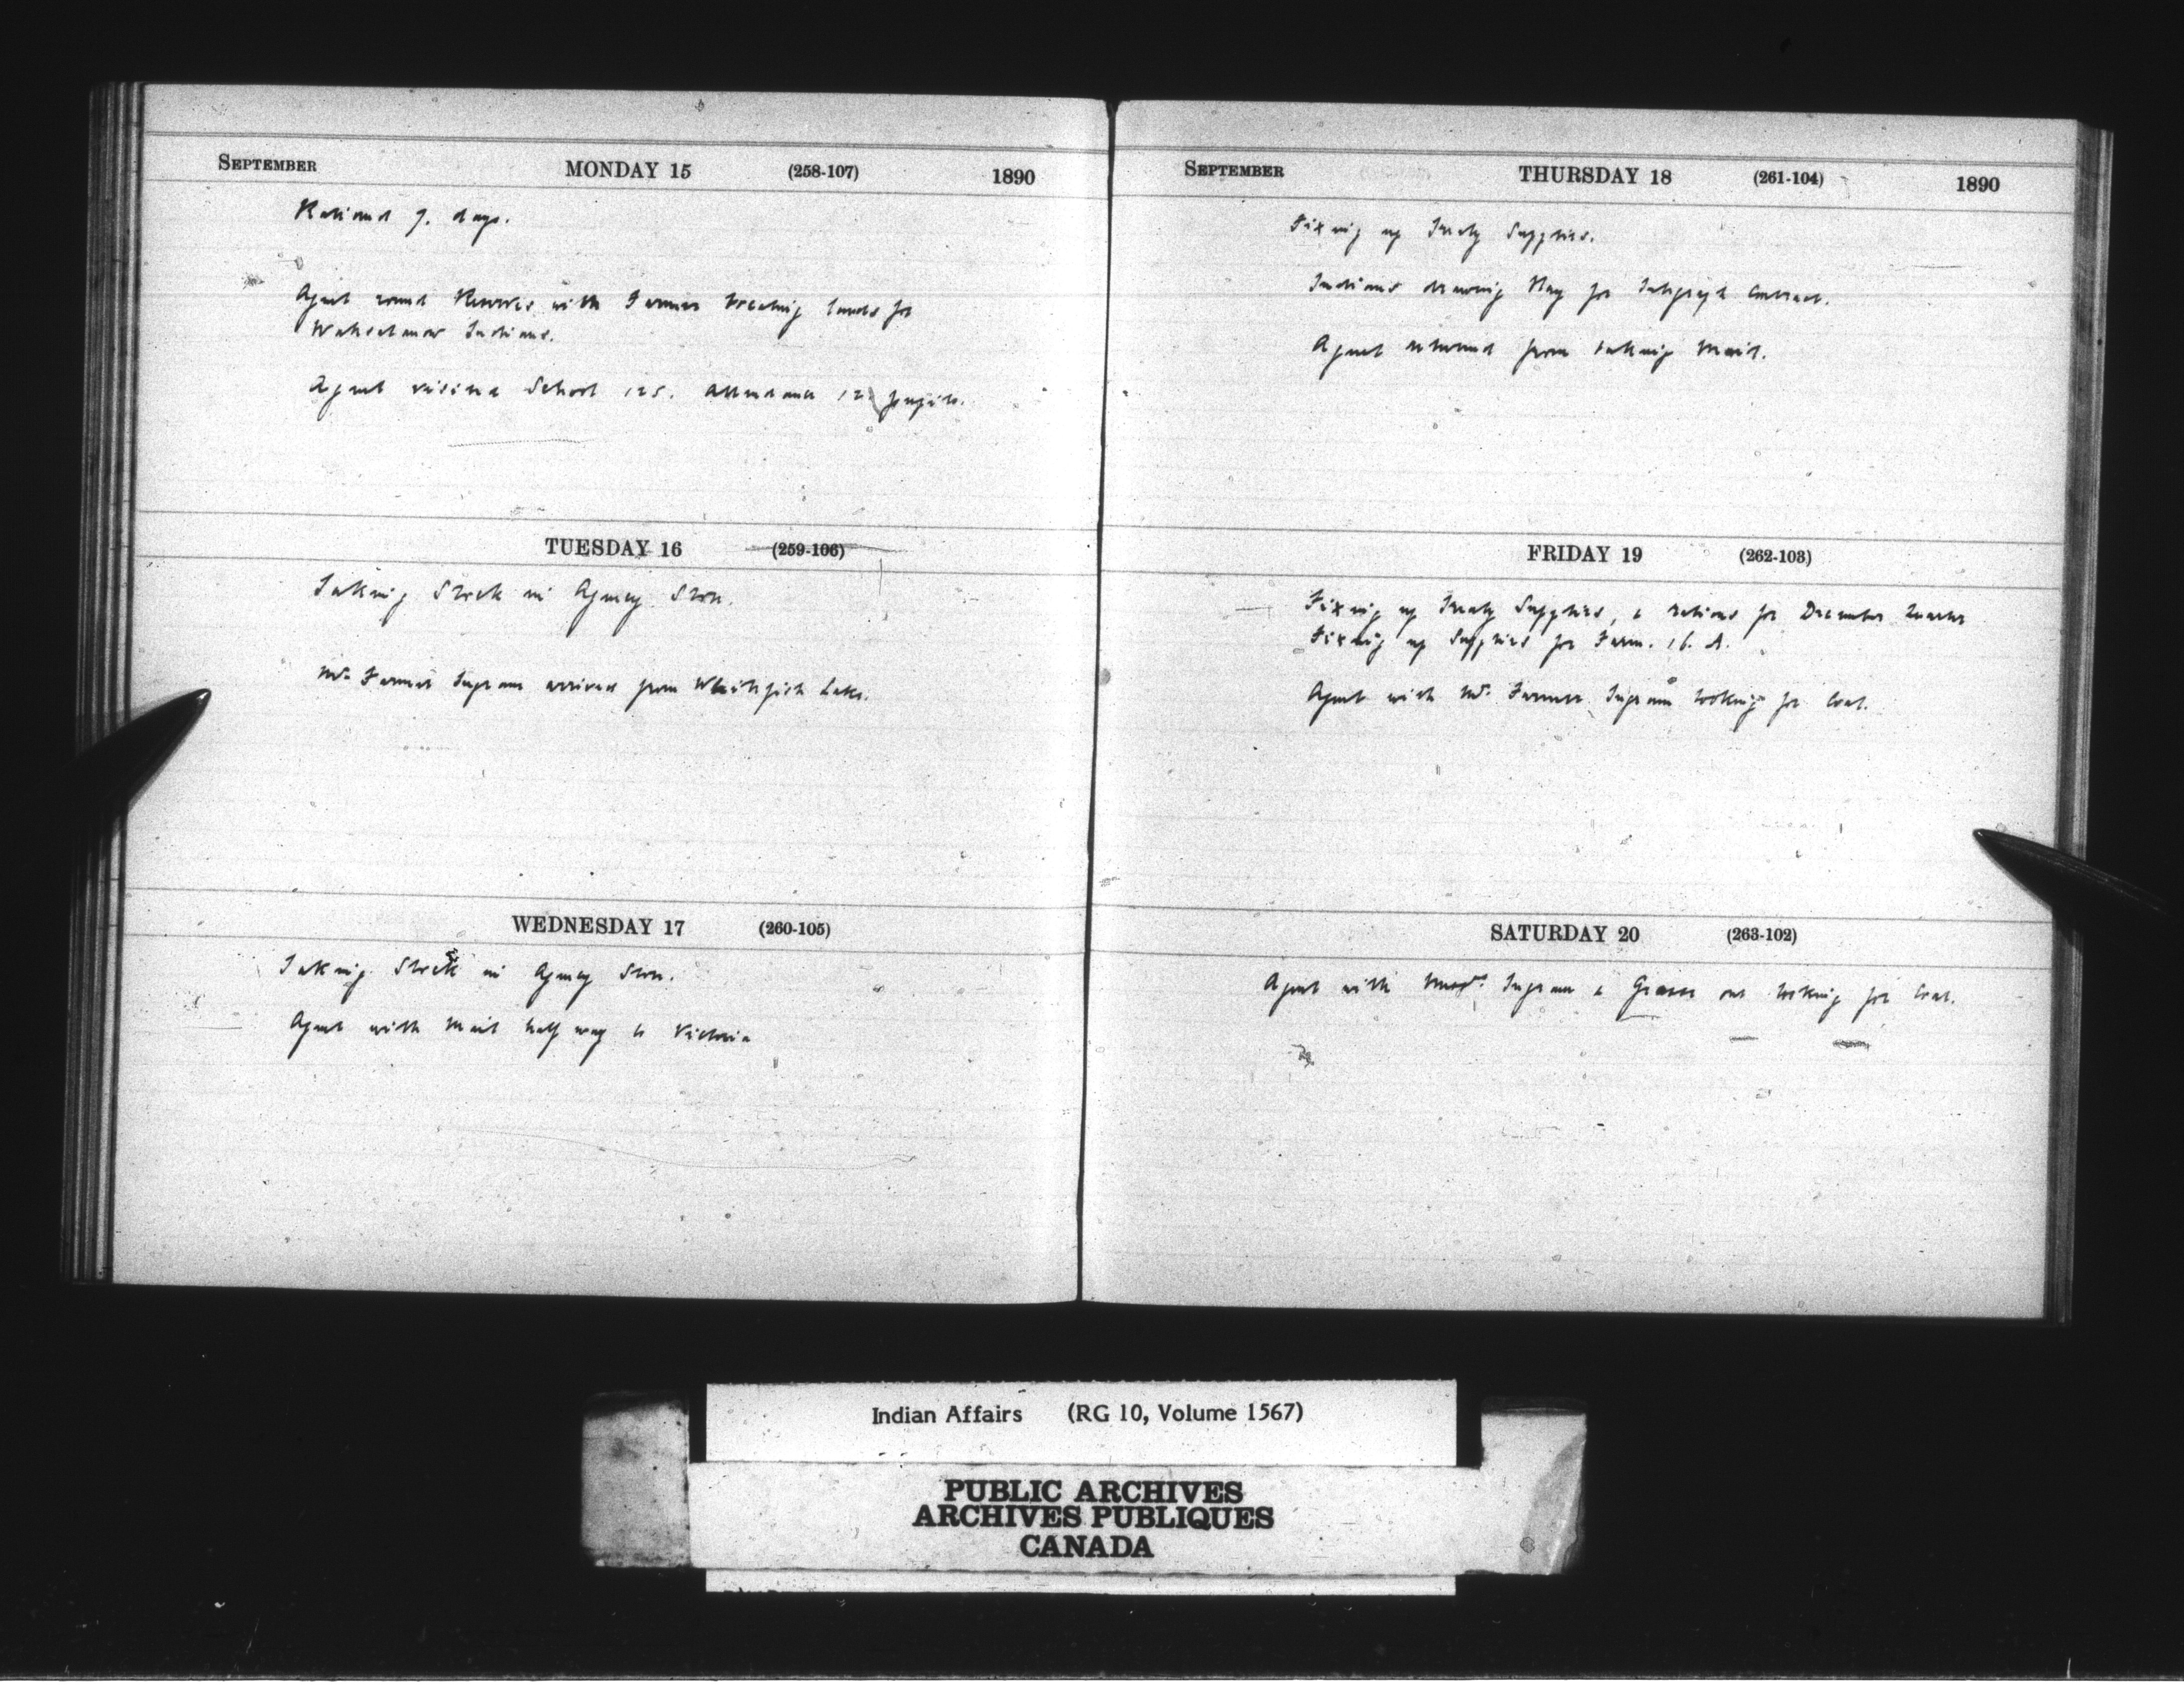 SEPTEMBER MONDAY 15 (258-107) 1890
Rationed 7. days.
Agent round Reserves with Farmer locating lands for
Wahsatanow Indians.
Agent visited School 125. attendance 12 pupils.
TUESDAY 16 (259-106)
Taking Stock in Agency Store.
Mr. Farmer Ingram arrived from Whitefish Lake.
WEDNESDAY 17 (260-105)
Taking Stock in Agency Store.
Agent with Mail half way to Victoria
SEPTEMBER THURSDAY 18 (261-104) 1890
Fixing up Treaty Supplies.
Indians drawing Hay for Telegraph Contract.
Agent returned from taking Mail.
FRIDAY 19 (262-103)
Fixing up Treaty Supplies, & rations for December Quarter
Fixing up Supplies for Farm. 16. A.
Agent with Mr. Farmer Ingram looking for Coal.
SATURDAY 20 (263-102)
Agent with Messrs. Ingram & out looking for Coal.
Indian Affairs (RG 10, Volume 1567)
PUBLIC ARCHIVES
ARCHIVES PUBLIQUES
CANADA